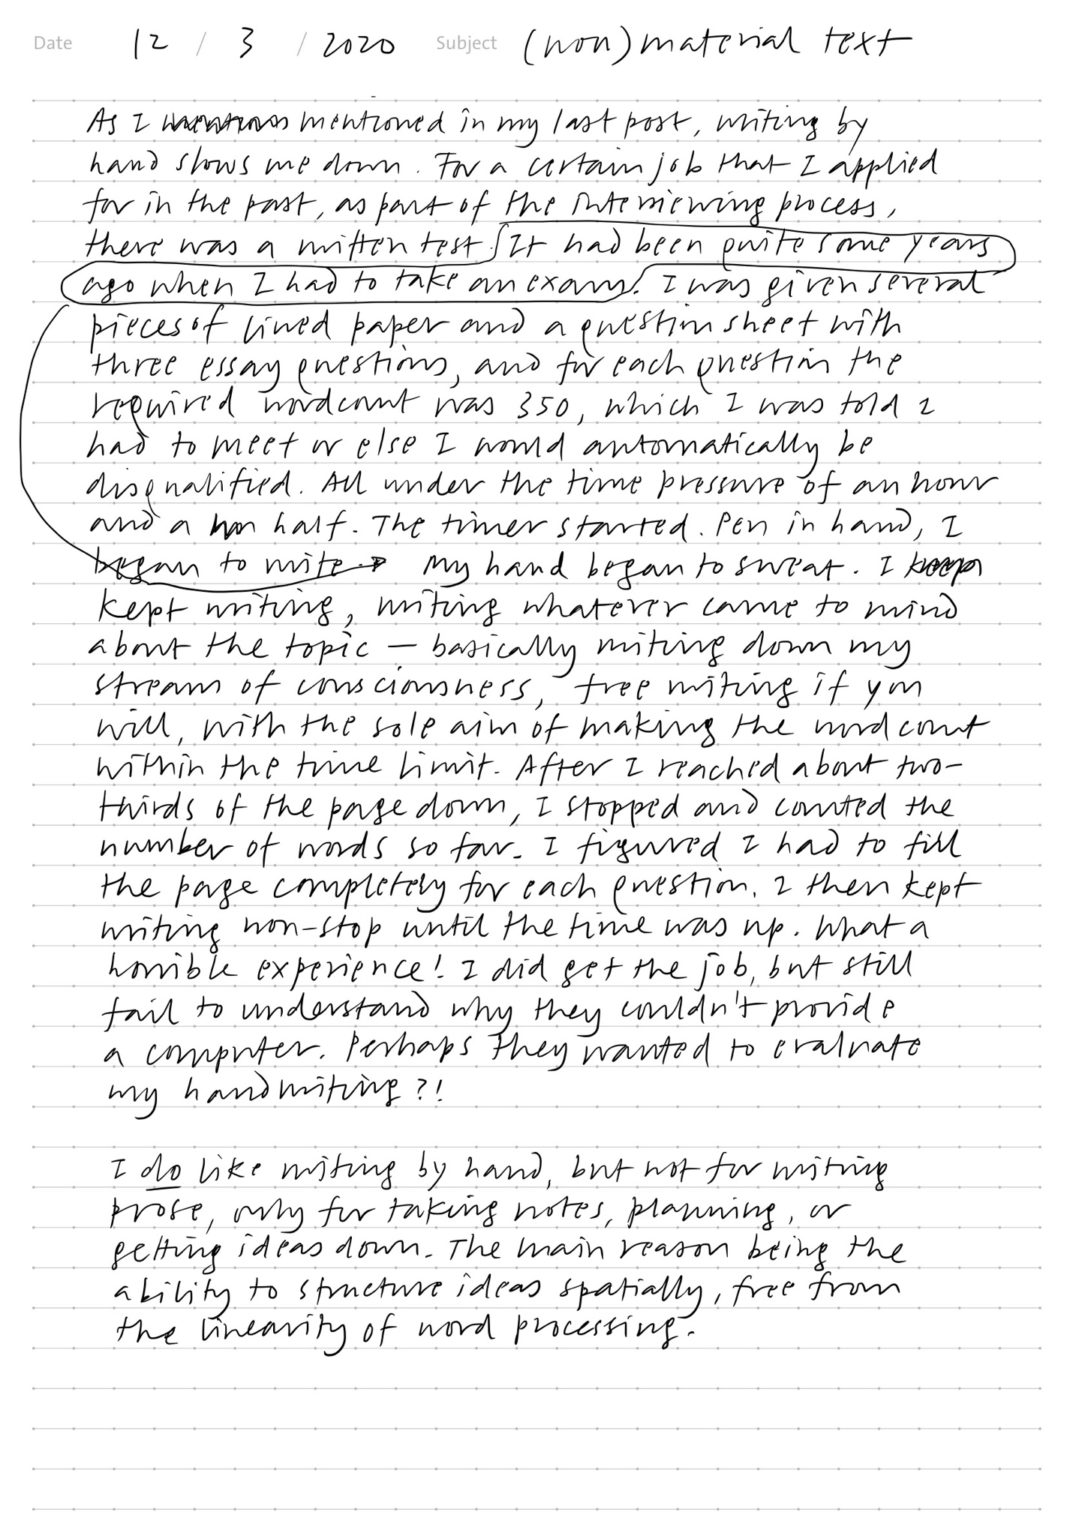 Date 12 / 3 / 2020 Subject (non)material text
As I mentioned in my last post, writing by
hand slows me down. For a certain job that I applied
for in the past, as part of the interviewing process,
there was a written test. It had been quite some years
ago when I had to take an exam. I was given several
pieces of lined paper and a question sheet with
three essay questions, and for each question the
required wordcount was 350, which I was told I
had to meet or else I would automatically be
disqualified. All under the time pressure of an hour
and a half. The timer started. Pen in hand, I
began to write. My hand began to sweat. I keep
kept writing, writing whatever came to mind
about the topic — basically writing down my
stream of consciousness, free writing if you
will, with the sole aim of making the word count
within the time limit. After I reached about two-
thirds of the page down, I stopped and counted the
number of words so far. I figured I had to fill
the page completely for each question. I then kept
writing non-stop until the time was up. What a
horrible experience! I did get the job, but still
fail to understand why they couldn't provide
a computer. Perhaps they wanted to evaluate
my handwriting?!
I do like writing by hand, but not for writing
prose, only for taking notes, planning, or
getting ideas down. The main reason being the
ability to structure ideas spatially, free from
the linearity of word processing.